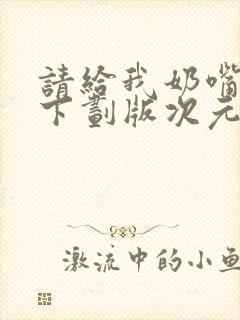 請給我奶嘴
下劃版次元
激流中的小魚